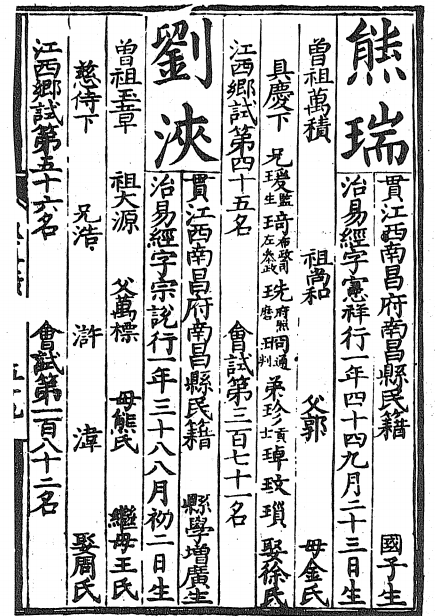 熊瑞
貫江西南昌府南昌縣民籍 國子生
治易經字憲祥行一年四十四九月二十三日生
曾祖萬積 祖尚和 父郭 母金氏
具慶下 兄璦監生 琦布政司左參政 珗府照磨 珦通判 弟珍貢士 琸 玟 瑣 娶徐氏
江西鄉試第四十五名 會試第三百七十一名
劉浹
貫江西南昌府南昌縣民籍 縣學增廣生
治易經字宗說行一年三十八八月初二日生
曾祖玉章 祖大源 父萬標 母熊氏 繼母王氏
慈侍下 兄浩 滸 湋 娶周氏
江西鄉試第五十六名 會試第一百八十二名